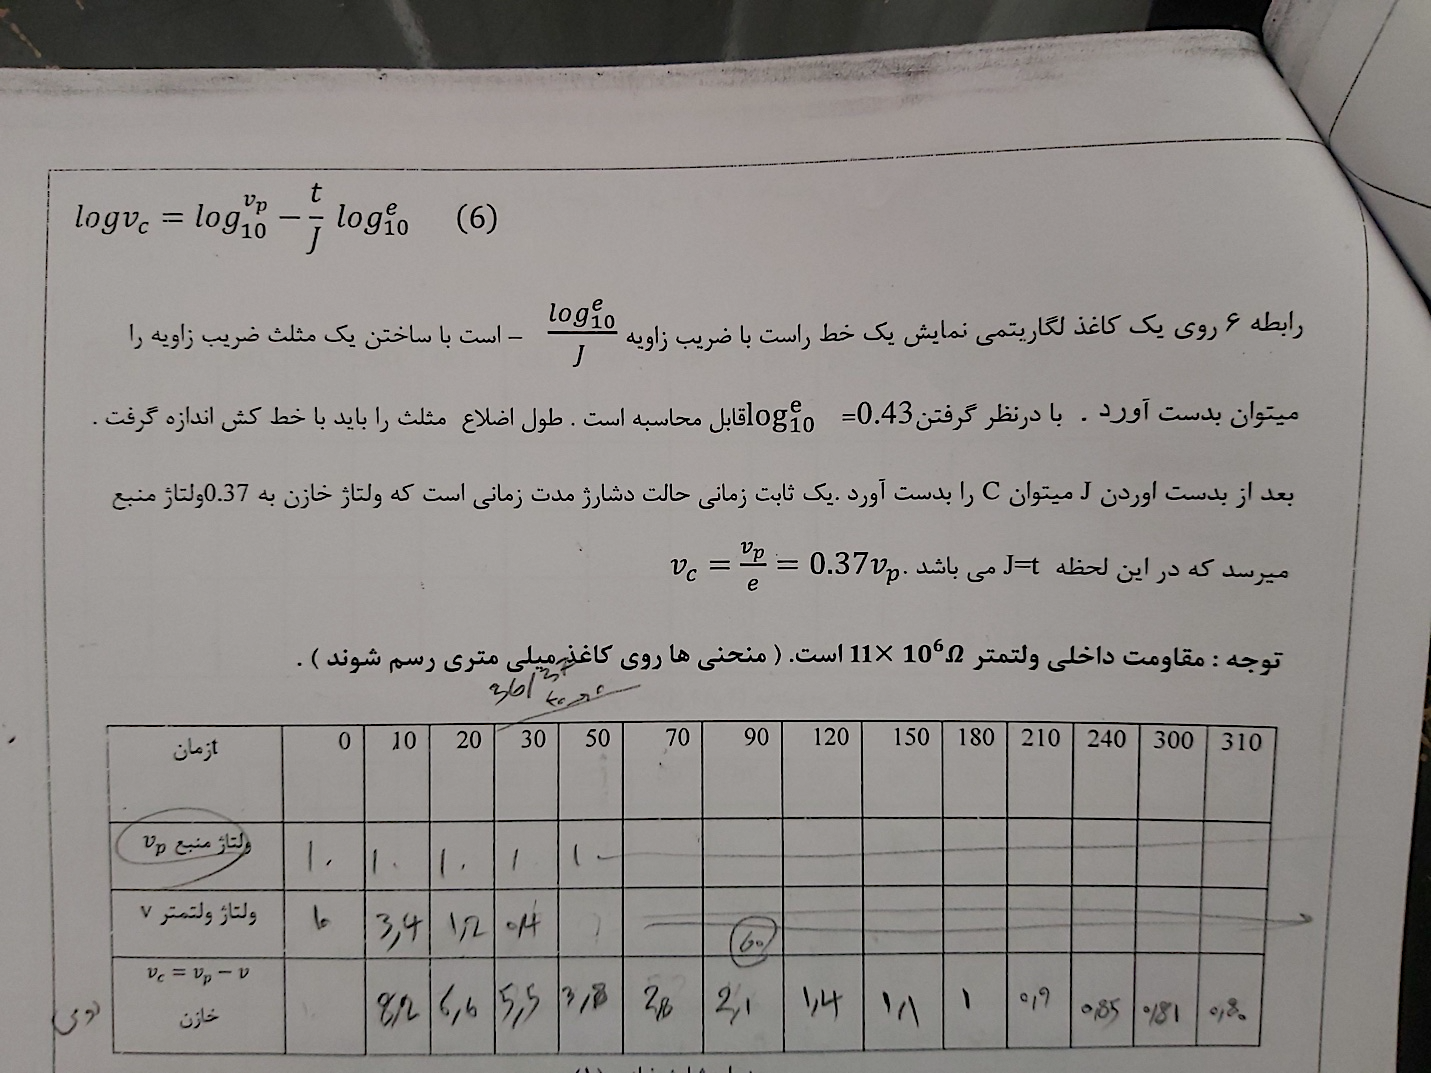 logv_c = log_{10}^{v_p} − \frac{t}{J} log_{10}^{e} (6)
رابطه ۶ روی یک کاغذ لگاریتمی نمایش یک خط راست با ضریب زاویه \frac{log_{10}^{e}}{J} – است با ساختن یک مثلث ضریب زاویه را
میتوان بدست آورد . با درنظر گرفتن 0.43= log_{10}^{e} قابل محاسبه است . طول اضلاع مثلث را باید با خط کش اندازه گرفت .
بعد از بدست اوردن J میتوان C را بدست آورد .یک ثابت زمانی حالت دشارژ مدت زمانی است که ولتاژ خازن به 0.37ولتاژ منبع
میرسد که در این لحظه J=t می باشد .v_c = \frac{v_p}{e} = 0.37v_p
توجه : مقاومت داخلی ولتمتر 11× 10⁶Ω است. ( منحنی ها روی کاغذ میلی متری رسم شوند ) .
زمانt 0 10 20 30 50 70 90 120 150 180 210 240 300 310
ولتاژ منبع v_p ۱۰ ۱۰ ۱۰ ۱ ۱۰
ولتاژ ولتمتر v 3,4 1,2
v_c = v_p − v
خازن 8,2 6,6 5,5 3,8 2,1 1,4 1,1 1 0,9 0,85 0,81 0,80